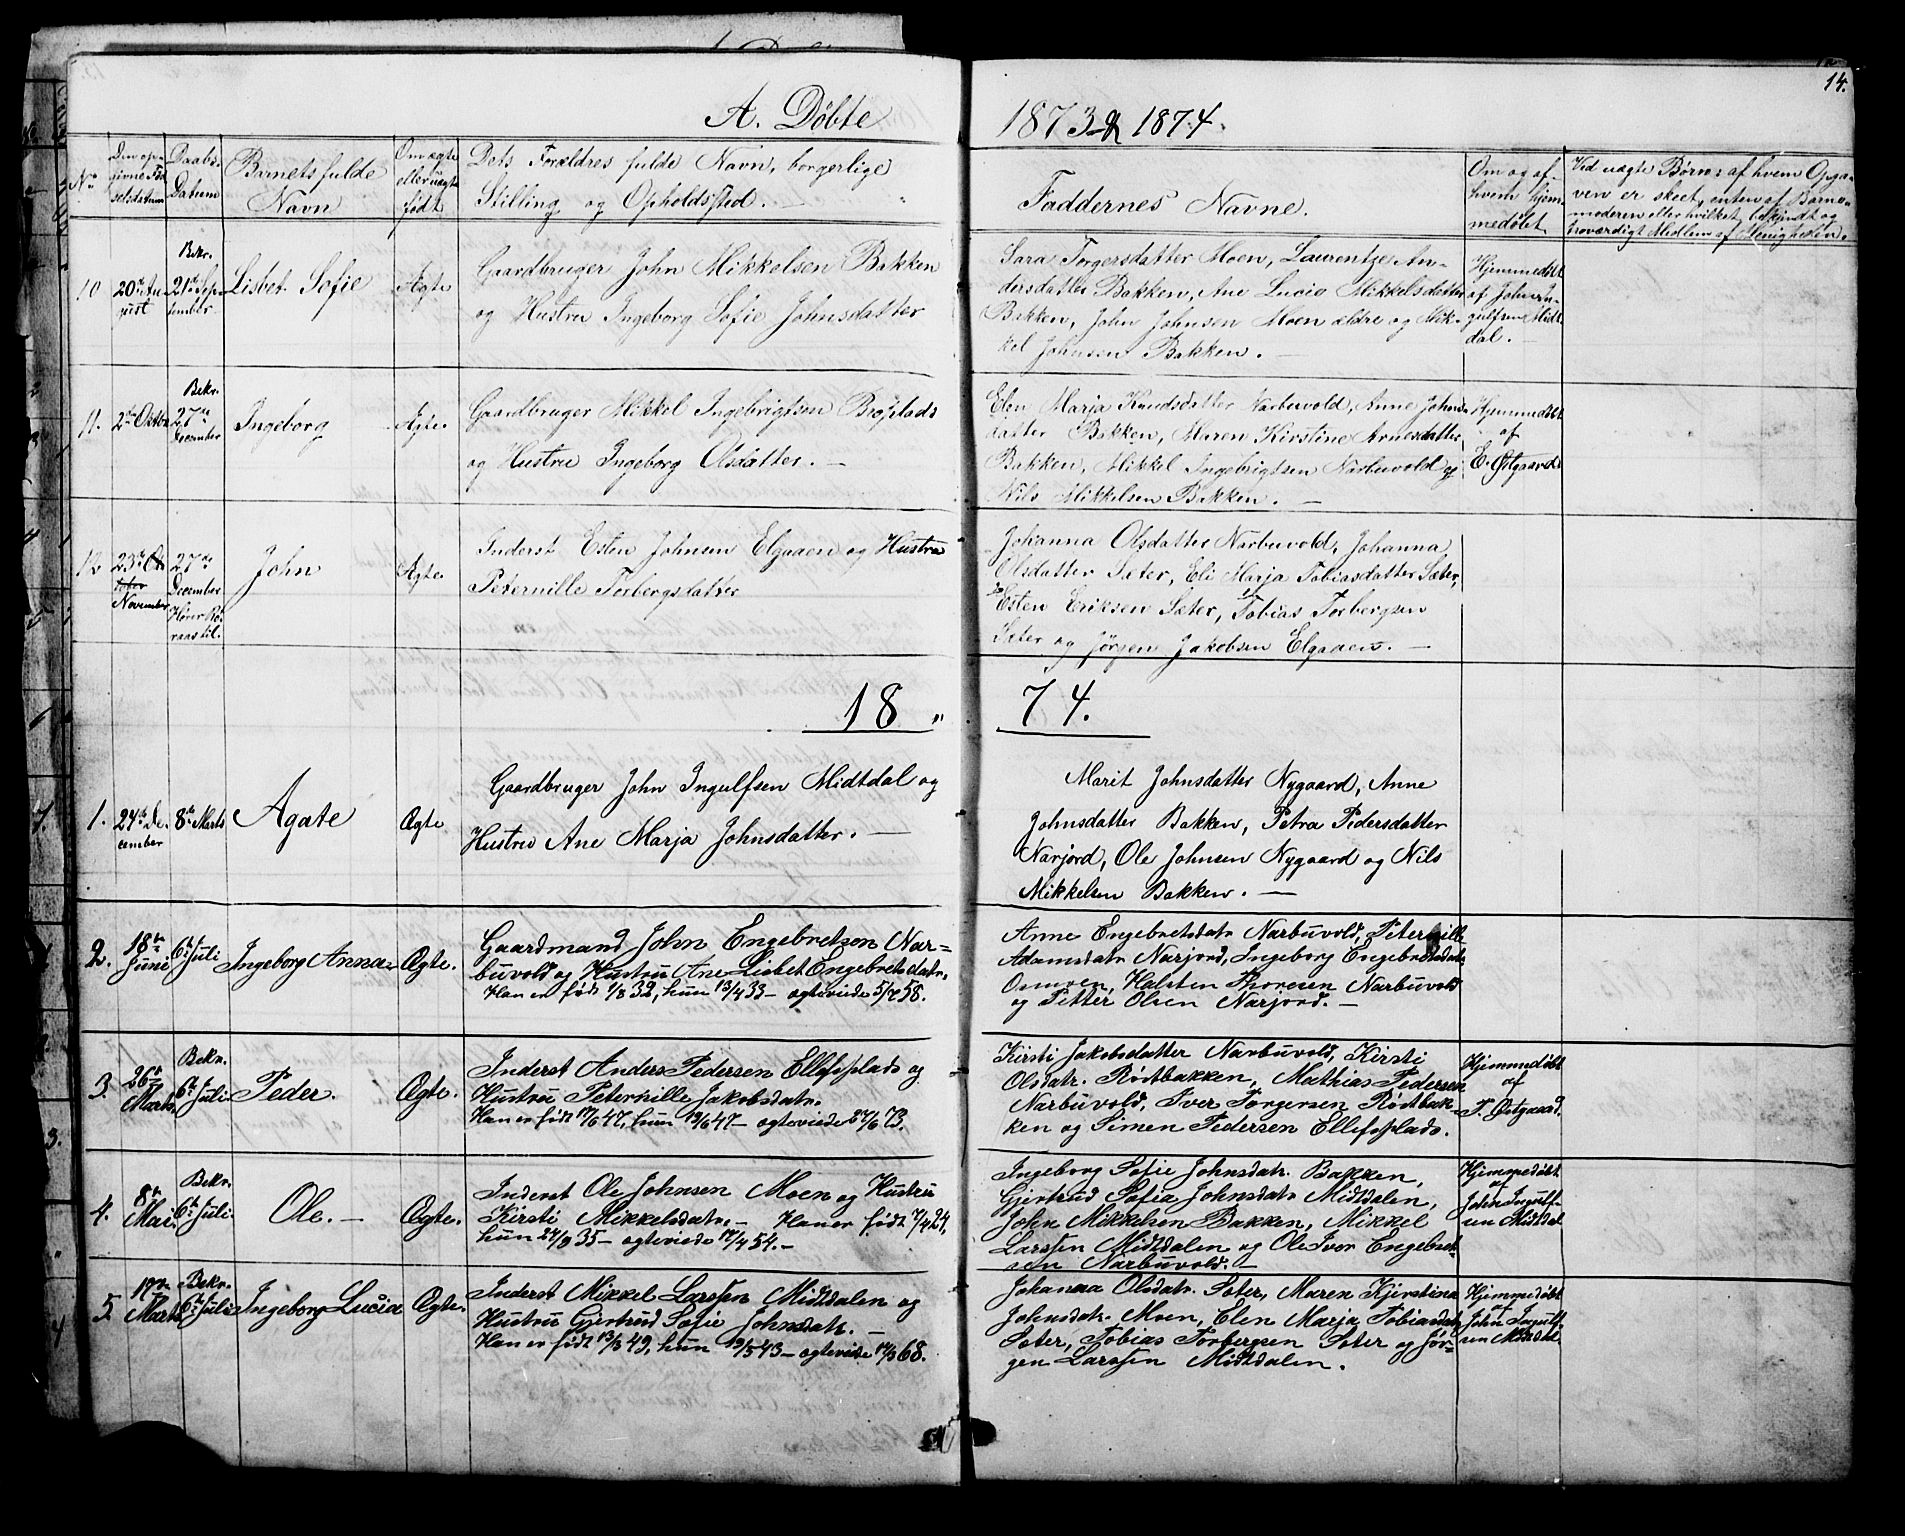 14.
A. Döbte 1873 & 1874.
No
Den op-
givne Föd
selsdatum
Daabs-
Datum
Barnets fulde
Navn
Om ægte
eller uægte
födt
Dets Forældres fulde Navn, borgerlige
Stilling og Opholdssted. —
Faddernes Navne.
Om og af
hvem hjem-
medøbt
Ved uægte Børn: af hvem Opga-
ven er skeet, enten af Barne-
moderen eller hvilket, bekjendt og
troværdigt Medlem af Menigheden.
10
20de Au-
gust
Bekr.
21de Sep-
tember
Lisbet Sofie
Ægte
Gaardbruger John Mikkelsen Bakken
og Hustru Ingeborg Sofie Johnsdatter
Sara Torgersdatter Moen, Laurentze An-
dersdatter Bakken, Ane Lucie Mikkelsdatter
Bakken, John Johnsen Moen ældre og Mik-
kel Johnsen Bakken. —
Hjemmedøbt
af John In-
gulfsen Midt-
dal. —
11.
2den Octbr
Bekr.
27de
December
Ingeborg
Ægte.
Gaardbruger Mikkel Ingebrigtsen Broplads
og Hustru Ingeborg Olsdatter. —
Elen Marja Knudsdatter Narbuvold, Anne Johns-
datter Bakken, Maren Kirstine Arnesdatter
Bakken, Mikkel Ingebrigtsen Narbuvold og
Nils Mikkelsen Bakken. —
Hjemmedøbt
af
E. Østgaard
12
23de Oc
tober
November
27de
December
Hører Rö-
raas til.
John
Ægte.
Inderst Esten Johnsen Elgaaen og Hustru
Petternille Torbergsdatter
Johanna Olsdatter Narbuvold, Johanna
Olsdatter Sæter, Eli Marja Tobiasdatter Sæter,
Esten Eriksen Sæter, Tobias Torbergsen
Sæter og Jörgen Jakobsen Elgaaen. —
18 „ 74.
1.
24de De-
cember
8de Marts
Agate
Ægte
Gaardbruger John Ingulfsen Midtdal og
Hustru Ane Marja Johnsdatter. —
Marit Johnsdatter Nygaard, Anne
Johnsdatter Bakken, Petra Pedersdatter
Narjord, Ole Johnsen Nygaard og Nils
Mikkelsen Bakken. —
2.
18de
Juni
6te Juli
Ingeborg Anna
Ægte.
Gaardmand John Engebretsen Nar-
buvold og Hustru Ane Lisbet Engebretsdatr.
Han er født 1/8 32, hun 13/4 33 — ægteviede 5/7 58.
Anne Engebretsdatr Narbuvold, Peternille
Adamsdatr Narjord, Ingeborg Engebretsdatr
Osmoen, Halsten Thoresen Narbuvold
og Petter Olsen Narjord. —
3.
26de
Marts
Bekr.
6te Juli
Peder.
Ægte.
Inderst Anders Pedersen Ellefsplads og
Hustru Peternille Jakobsdatr.
Han er født 17/6 47, hun 19/6 47 — ægteviede 27/6 73.
Kirsti Jakobsdatter Narbuvold, Kirsti
Olsdatr. Rödtbakken, Mathias Pedersen
Narbuvold, Iver Torgersen Rödtbak-
ken og Simen Pedersen Ellefsplads.
Hjemmedøbt
af
T. Østgaard.
4.
8de
Mai
Bekr.
6te Juli
Ole. —
Ægte.
Inderst Ole Johnsen Moen og Hustru
Kirsti Mikkelsdatr. — Han er født 7/4 24,
hun 27/9 35 — ægteviede 17/4 54. —
Ingeborg Sofie Johnsdatr. Bakken,
Gjertrud Sofia Johnsdatr Midtdalen,
John Mikkelsen Bakken, Mikkel
Larssen Midtdalen og Ole Iver Engebret-
sen Narbuvold. —
Hjemmedøbt
af
John Ingulf-
sen Midtdal
5.
19de
Marts
Bekr.
6te Juli
Ingeborg Lucia
Ægte.
Inderst Mikkel Larssen Midtdalen og
Hustru Gjertrud Sofie Johnsdatr. —
Han er født 13/8 49, hun 19/5 43 — ægteviede 12/3 68.
Johanna Olsdatr. Sæter, Maren Kjerstina
Johnsdatr. Moen, Elen Marja Tobiasdatr
Sæter, Tobias Torbergsen Sæter og Jør-
gen Larssen Midtdalen.
Hjemmedøbt
af
John Ingulf-
sen Midtdal